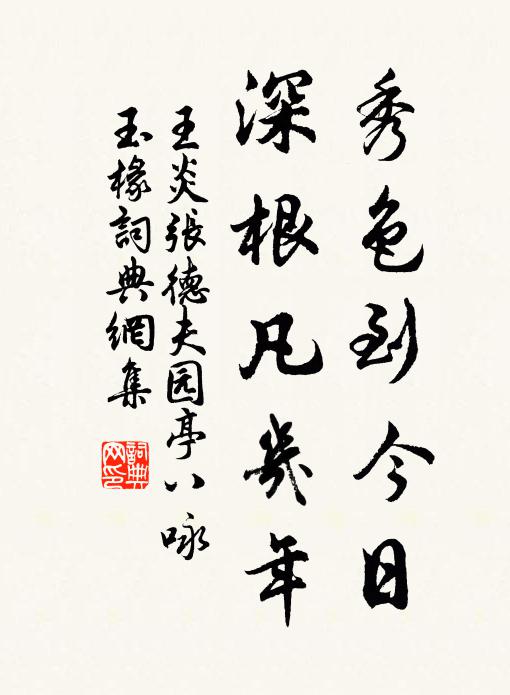 秀色到今日
深根凡幾年
王炎張德夫园亭八咏
玉椽詞典網集
詞典網印